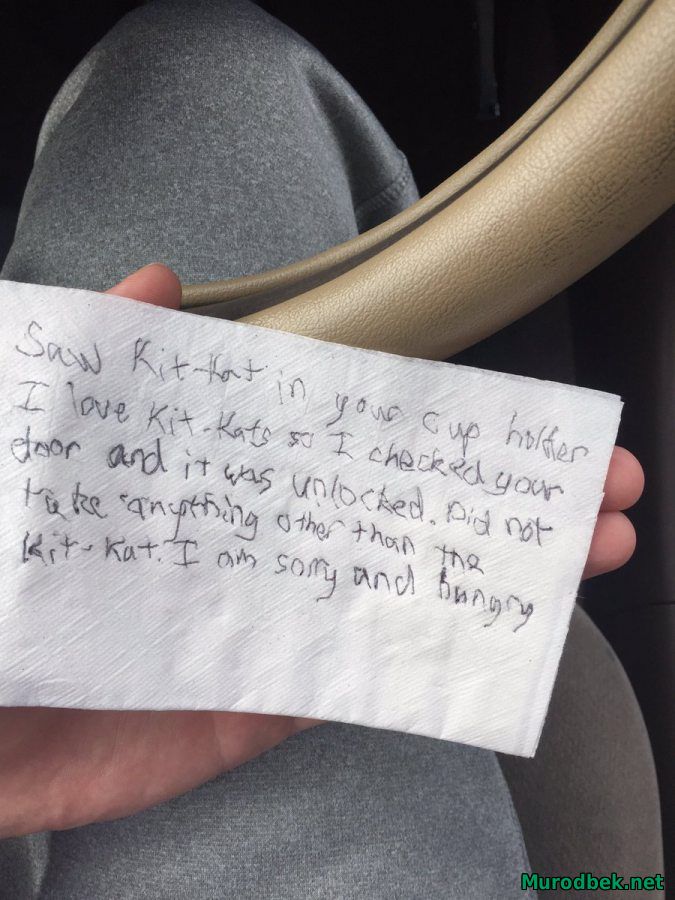 Saw Kit-Kat in your cup holder
I love Kit-Kats so I checked your
door and it was unlocked. Did not
take anything other than the
Kit-Kat. I am sorry and hungry
Murodbek.net